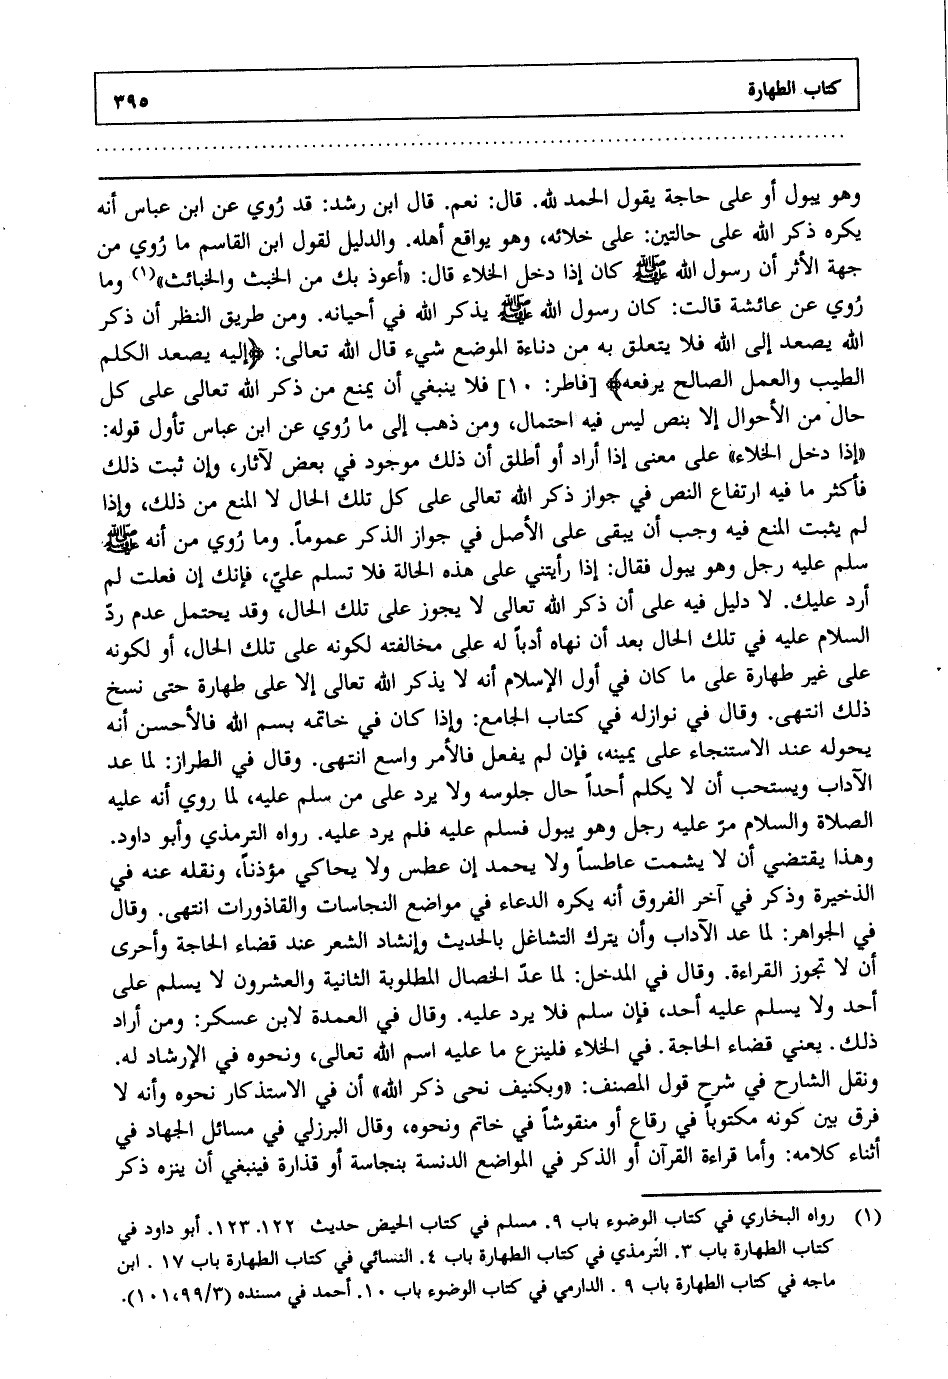 كتاب الطهارة ٣٩٥
وهو يبول أو على حاجة يقول الحمد لله. قال: نعم. قال ابن رشد: قد رُوي عن ابن عباس أنه
يكره ذكر الله على حالتين: على خلائه، وهو يواقع أهله. والدليل لقول ابن القاسم ما رُوي من
جهة الأثر أن رسول الله ﷺ كان إذا دخل الخلاء قال: «أعوذ بك من الخبث والخبائث»(١) وما
رُوي عن عائشة قالت: كان رسول الله ﷺ يذكر الله في أحيانه. ومن طريق النظر أن ذكر
الله يصعد إلى الله فلا يتعلق به من دناءة الموضع شيء قال الله تعالى: ﴿إليه يصعد الكلم
الطيب والعمل الصالح يرفعه﴾ [فاطر: ١٠] فلا ينبغي أن يمنع من ذكر الله تعالى على كل
حال من الأحوال إلا بنص ليس فيه احتمال، ومن ذهب إلى ما رُوي عن ابن عباس تأول قوله:
«إذا دخل الخلاء» على معنى إذا أراد أو أطلق أن ذلك موجود في بعض لآثار، وإن ثبت ذلك
فأكثر ما فيه ارتفاع النص في جواز ذكر الله تعالى على كل تلك الحال لا المنع من ذلك، وإذا
لم يثبت المنع فيه وجب أن يبقى على الأصل في جواز الذكر عموماً. وما رُوي من أنه ﷺ
سلم عليه رجل وهو يبول فقال: إذا رأيتني على هذه الحالة فلا تسلم عليّ، فإنك إن فعلت لم
أرد عليك. لا دليل فيه على أن ذكر الله تعالى لا يجوز على تلك الحال، وقد يحتمل عدم ردّ
السلام عليه في تلك الحال بعد أن نهاه أدباً له على مخالفته لكونه على تلك الحال، أو لكونه
على غير طهارة على ما كان في أول الإسلام أنه لا يذكر الله تعالى إلا على طهارة حتى نسخ
ذلك انتهى. وقال في نوازله في كتاب الجامع: وإذا كان في خاتمه بسم الله فالأحسن أنه
يحوله عند الاستنجاء على يمينه، فإن لم يفعل فالأمر واسع انتهى. وقال في الطراز: لما عد
الآداب ويستحب أن لا يكلم أحداً حال جلوسه ولا يرد على من سلم عليه، لما روي أنه عليه
الصلاة والسلام مرّ عليه رجل وهو يبول فسلم عليه فلم يرد عليه. رواه الترمذي وأبو داود.
وهذا يقتضي أن لا يشمت عاطساً ولا يحمد إن عطس ولا يحاكي مؤذناً، ونقله عنه في
الذخيرة وذكر في آخر الفروق أنه يكره الدعاء في مواضع النجاسات والقاذورات انتهى. وقال
في الجواهر: لما عد الآداب وأن يترك التشاغل بالحديث وإنشاد الشعر عند قضاء الحاجة وأحرى
أن لا تجوز القراءة. وقال في المدخل: لما عدّ الخصال المطلوبة الثانية والعشرون لا يسلم على
أحد ولا يسلم عليه أحد، فإن سلم فلا يرد عليه. وقال في العمدة لابن عسكر: ومن أراد
ذلك. يعني قضاء الحاجة. في الخلاء فلينزع ما عليه اسم الله تعالى، ونحوه في الإرشاد له.
ونقل الشارح في شرح قول المصنف: «وبكنيف نحى ذكر الله» أن في الاستذكار نحوه وأنه لا
فرق بين كونه مكتوباً في رقاع أو منقوشاً في خاتم ونحوه، وقال البرزلي في مسائل الجهاد في
أثناء كلامه: وأما قراءة القرآن أو الذكر في المواضع الدنسة بنجاسة أو قذارة فينبغي أن ينزه ذكر
(١) رواه البخاري في كتاب الوضوء باب ٩. مسلم في كتاب الحيض حديث ١٢٢. ١٢٣. أبو داود في
كتاب الطهارة باب ٣. الترمذي في كتاب الطهارة باب ٤. النسائي في كتاب الطهارة باب ١٧ . ابن
ماجه في كتاب الطهارة باب ٩ . الدارمي في كتاب الوضوء باب ١٠. أحمد في مسنده (١٠١،٩٩/٣).